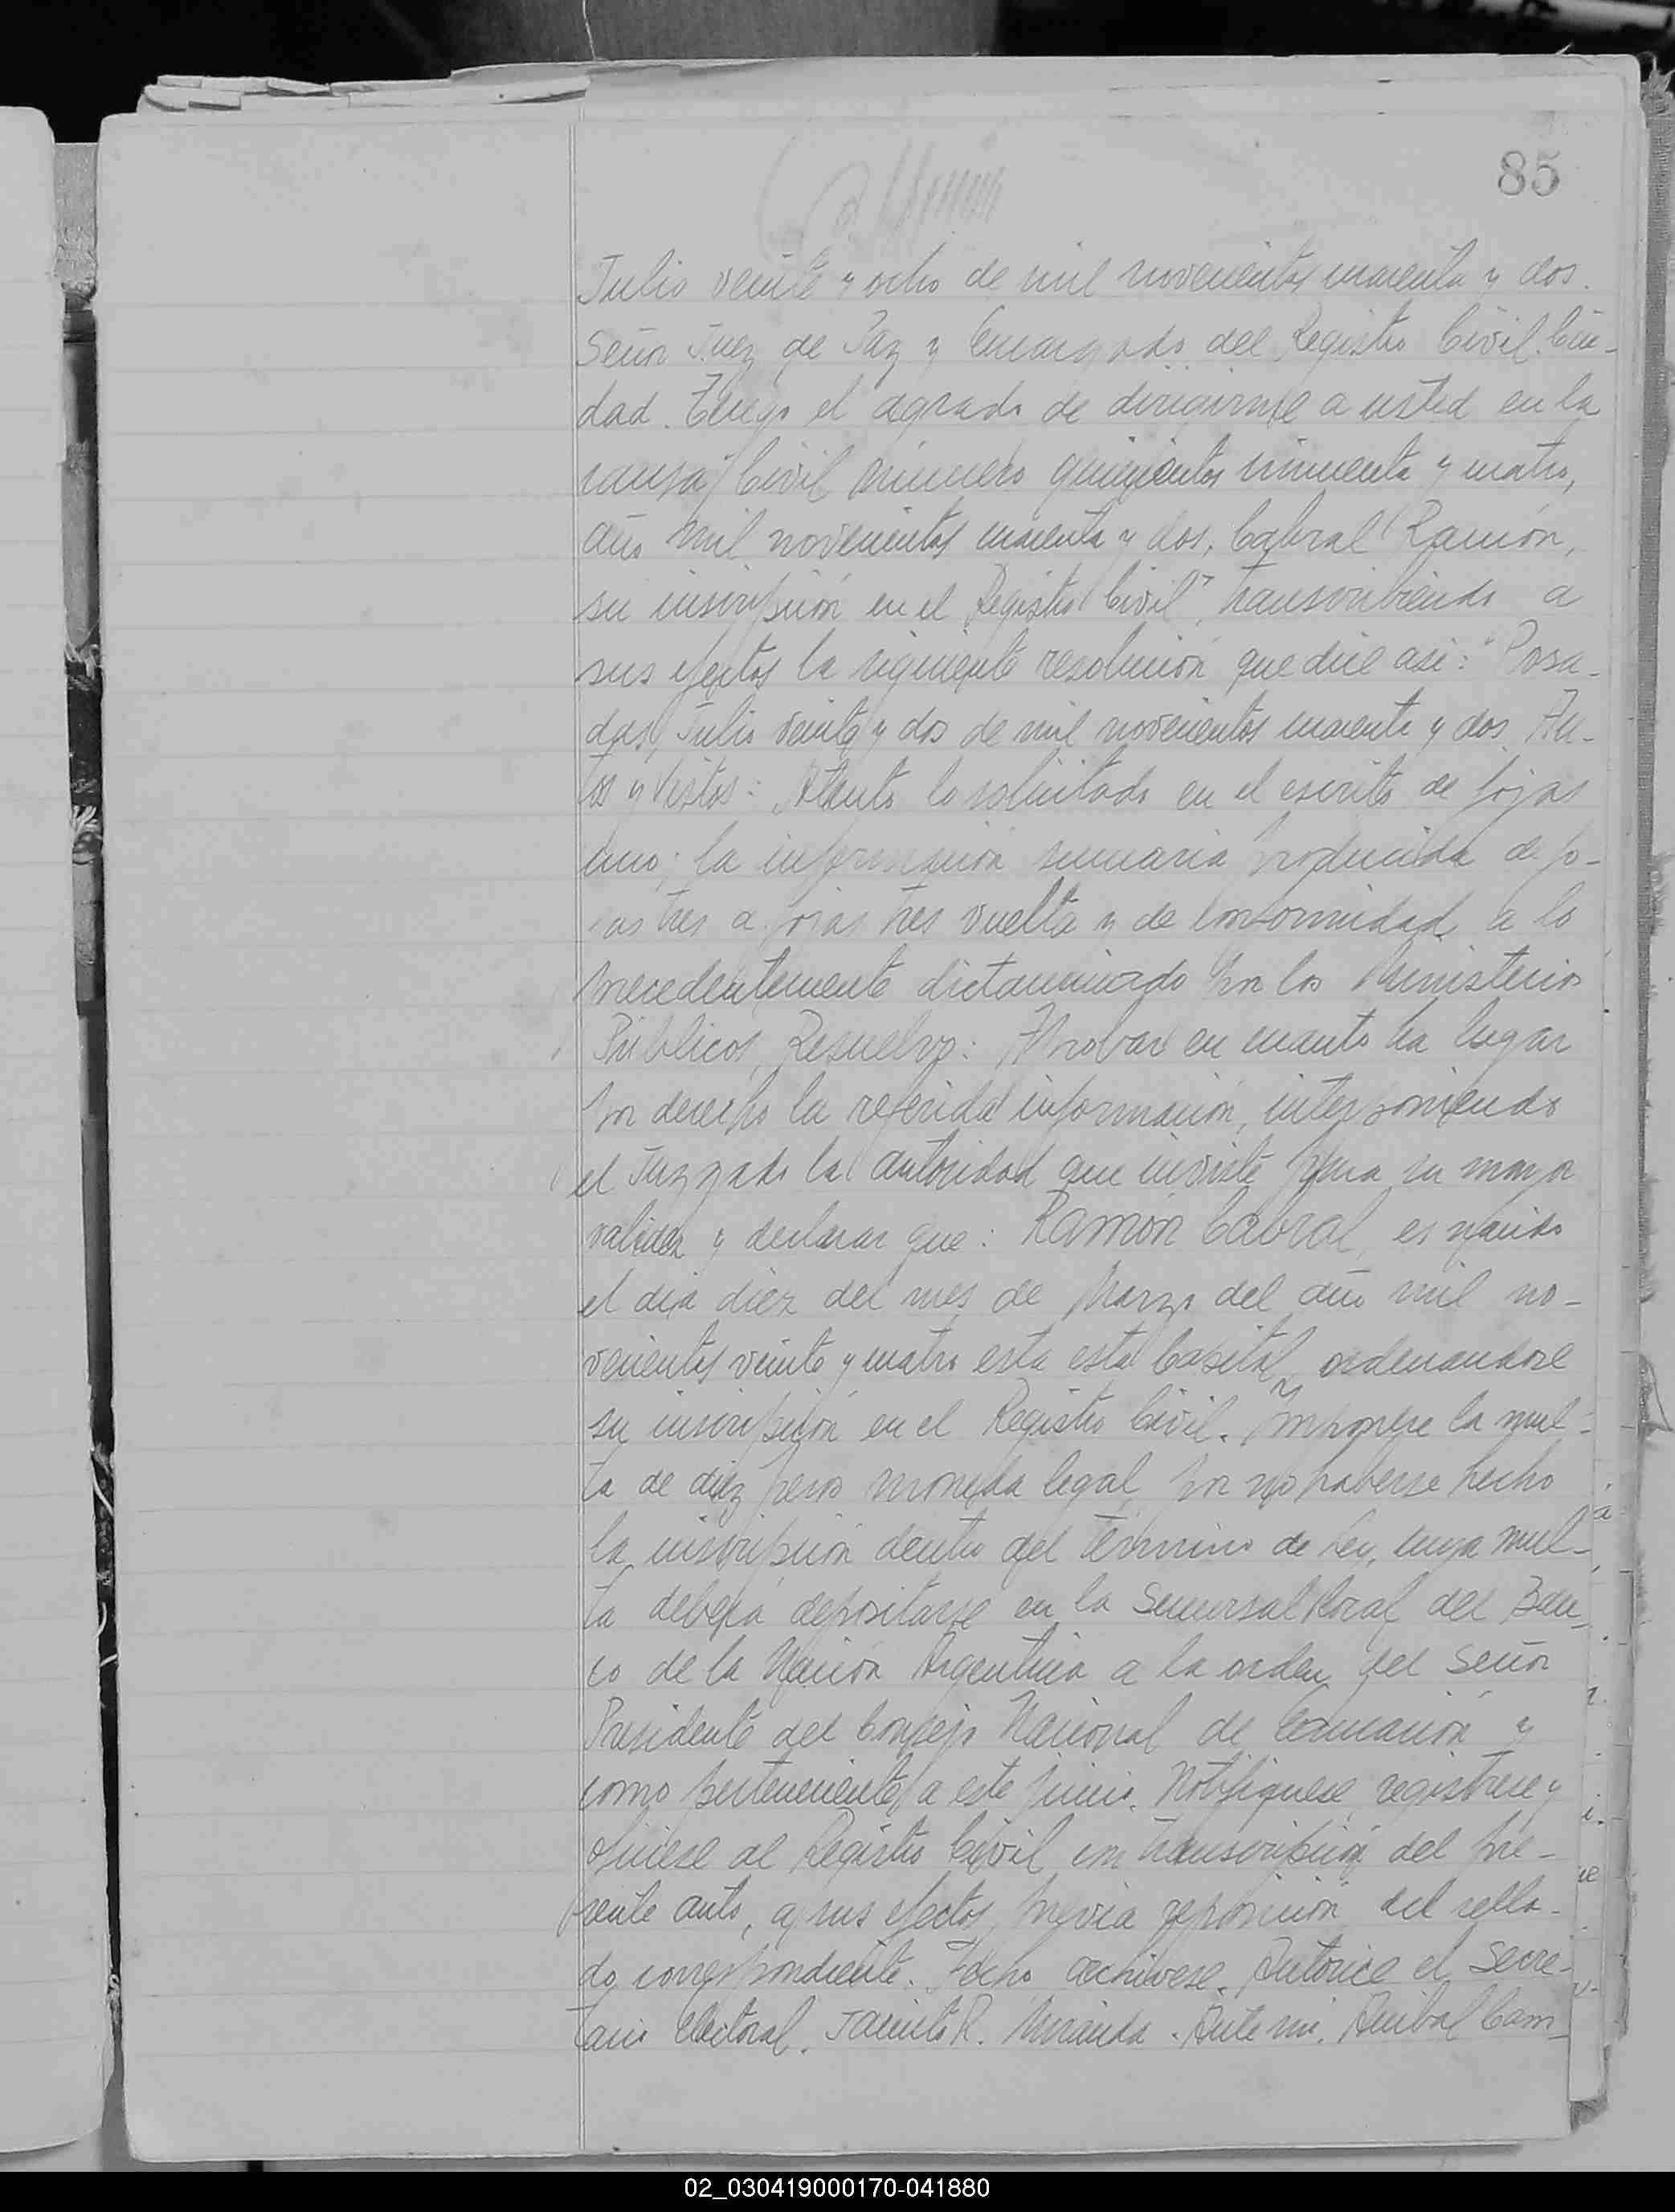 85
Julio veinte y ocho de mil novecientos cuarenta y dos.
Señor Juez de Paz y Encargado del Registro Civil. Ciu-
dad. Tengo el agrado de dirigirme a usted en la
causa "Civil número quinientos cincuenta y cuatro,
año mil novecientos cuarenta y dos, Cabral Ramón,
su inscripción en el Registro Civil", transcribiendo a
sus efectos la siguiente resolución que dice asi: "Posa-
das, Julio veinte y dos de mil novecientos cuarenta y dos. Au-
tos y Vistos: Atento lo solicitado en el escrito de fojas
uno; la información sumaria producida de fo-
jas tres a fojas tres vuelta y de conformidad a lo
precedentemente dictaminado por los Ministerios
Públicos, Resuelvo: Aprobar en cuanto ha lugar
por derecho la referida información, interponiendo
el Juzgado la autoridad que inviste para su mayor
validez y declarar que: Ramón Cabral, es nacido
el día diez del mes de Marzo del año mil no-
vecientos veinte y cuatro esta esta Capital, ordenandose
su inscripción en el Registro Civil. Imponese la mul-
ta de diez pesos moneda legal por no haberse hecho
la inscripción dentro del término de Ley, cuya mul-
ta deberá depositarse en la Sucursal local del Ban-
co de la Nación Argentina a la orden del Señor
Presidente del Consejo Nacional de Educación y
como perteneciente a este juicio. Notifiquese, registrese y
ofíciese al Registro Civil con transcripción del pre-
sente auto, a sus efectos, previa reposición del sella-
do correspondiente. Fecho, archivese. Autorice el Secre-
tario Electoral. Jacinto R. Miranda. Ante mi. Anibal Cam-
02_030419000170-041880